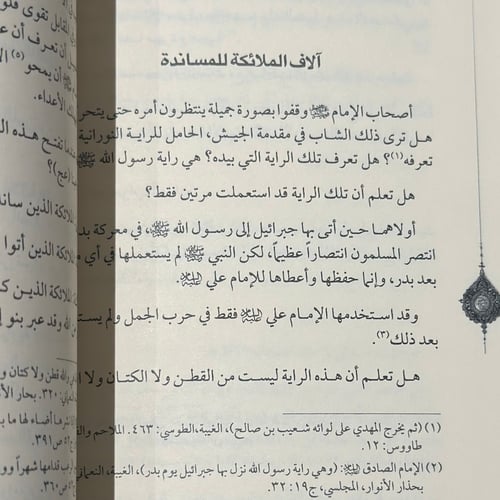 آلاف الملائكة للمساندة
أصحاب الإمام ﷺ وقفوا بصورة جميلة ينتظرون أمره حتى يتحر
هل ترى ذلك الشاب في مقدمة الجيش، الحامل للراية النورانية
تعرفه(١)؟ هل تعرف تلك الراية التي بيده؟ هي راية رسول الله ﷺ
هل تعلم أن تلك الراية قد استعملت مرتين فقط؟
أولاهما حين أتى بها جبرائيل إلى رسول الله ﷺ، في معركة بد
انتصر المسلمون انتصاراً عظيماً، لكن النبي ﷺ لم يستعملها في أي م
بعد بدر، وإنما حفظها وأعطاها للإمام علي عليه السلام.
وقد استخدمها الإمام علي عليه السلام فقط في حرب الجمل ولم يست
بعد ذلك(٣).
هل تعلم أن هذه الراية ليست من القطن ولا الكتان ولا ا
(١) (ثم يخرج المهدي على لوائه شعيب بن صالح)، الغيبة، الطوسي: ٤٦٣. الملاحم وال
طاووس: ١٢.
(٢) الإمام الصادق عليه السلام: (وهي راية رسول الله نزل بها جبرائيل يوم بدر)، الغيبة، النعما
بحذار الأنوار، المجلسي، ج١٩: ٣٢.
لمقابل تقوى قلو
أن تعرف أن ع
أن يمحو(٥) ال
الأعداء.
تفتح هذه ال
(عج)؟
ملائكة الذين ساند
الملائكة الذين أتوا
الملائكة الذين ك
الله وقد عبر بنو إ
والله قطن ولا كتان و
٣٢٠. بحار الأن
ما أضاء لها ما ب
ص٣٩١.
قدامها شهراً وو
ص٣٦٠.